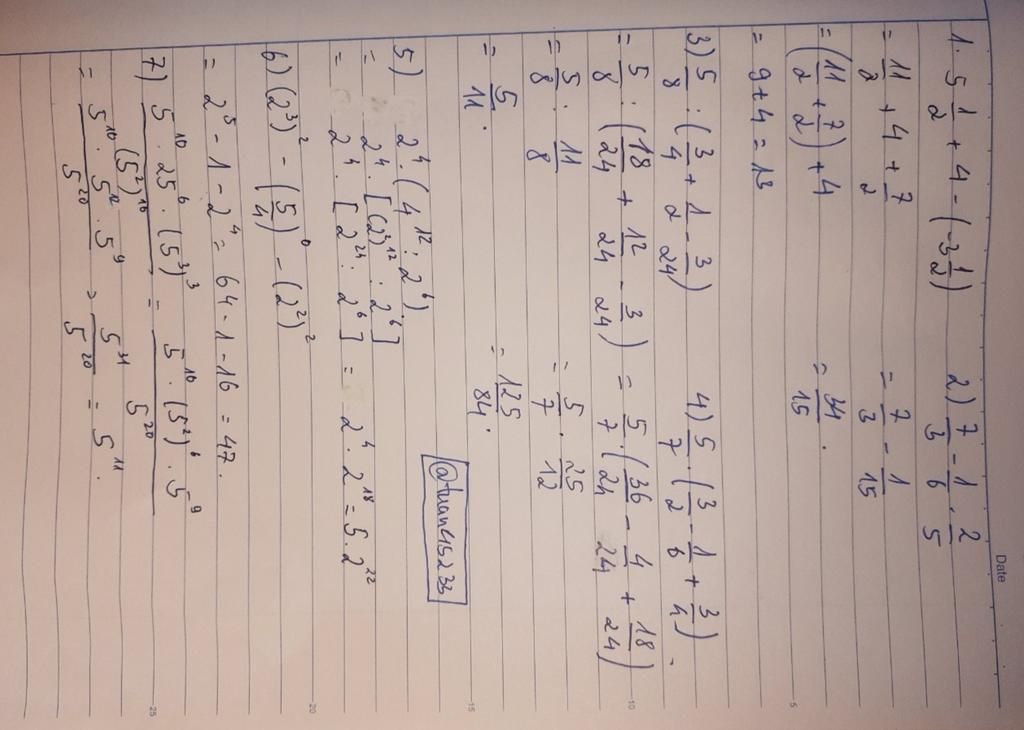 Date
1. 5 1/2 + 4 - (-3 1/2)
= 11/2 + 4 + 7/2
= (11/2 + 7/2) + 4
= 9 + 4 = 13
2) 7/3 - 1/6 . 2/5
= 7/3 - 1/15
= 34/15 .
3) 5/8 : (3/4 + 1/2 - 3/24)
= 5/8 : (18/24 + 12/24 - 3/24)
= 5/8 : 11/8
= 5/11 .
4) 5/7 . (3/2 - 1/6 + 3/4) .
= 5/7 . (36/24 - 4/24 + 18/24)
= 5/7 . 25/12
= 125/84 .
5) 2^4 . (4^12 : 2^6) .
= 2^4 . [(2^2)^12 : 2^6]
= 2^4 . [2^24 : 2^6] = 2^4 . 2^18 = 5 . 2^22
6) (2^3)^2 - (5/4)^0 - (2^2)^2
= 2^5 - 1 - 2^4 = 64 - 1 - 16 = 47 .
7) 5^10 . 25^6 . (5^3)^3 / (5^2)^10 = 5^10 . (5^2)^6 . 5^9 / 5^20
= 5^10 . 5^12 . 5^9 / 5^20 > 5^31 / 5^20 = 5^11 .
5
10
15
20
25